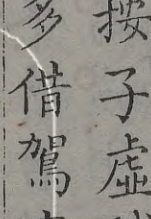 按子虛
多借駕